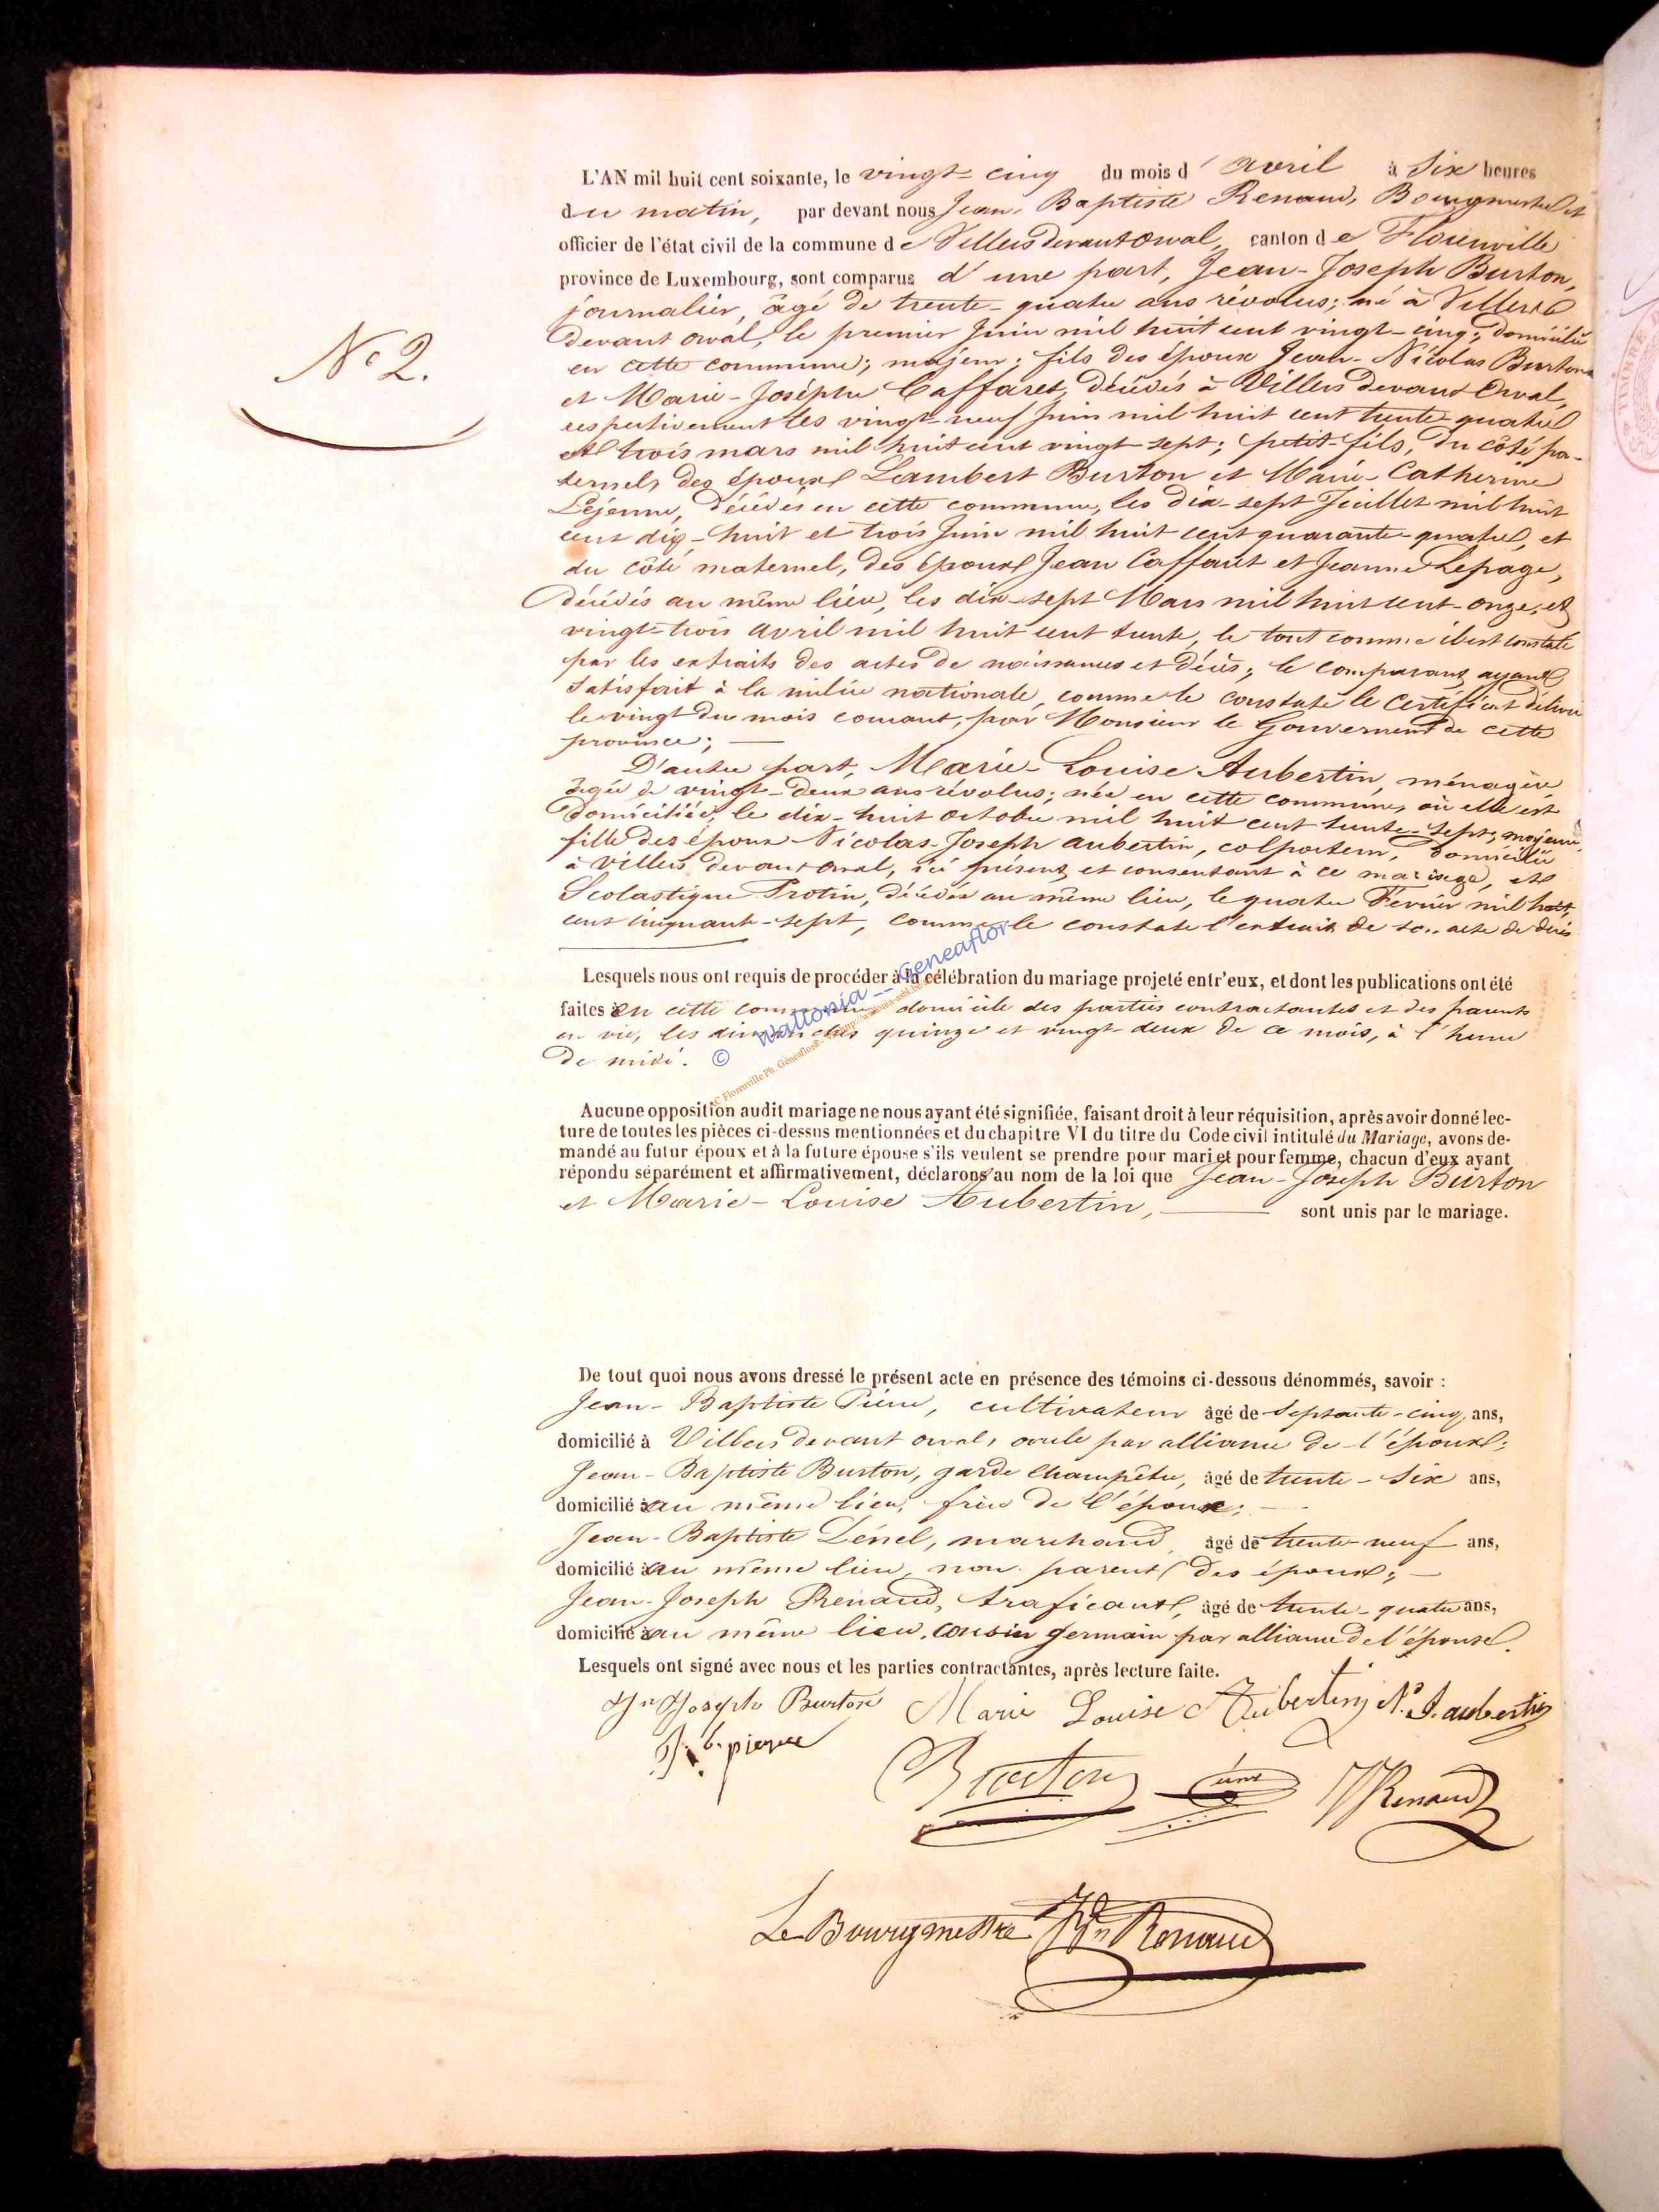 N° 2.
L'AN mil huit cent soixante, le vingt-cinq du mois d'avril à six heures
du matin, par devant nous Jean-Baptiste Renaud, Bourgmestre et
officier de l'état civil de la commune de Villers devant Orval, canton de Florenville
province de Luxembourg, sont comparus d'une part, Jean-Joseph Burton,
journalier, âgé de trente-quatre ans révolus; né à Villers
devant orval, le premier Juin mil huit cent vingt-cinq; domicilié
en cette commune; majeur; fils des époux Jean-Nicolas Burton
et Marie-Joséphe Caffaret, décédés à Villers devant Orval,
respectivement les vingt-neuf Juin mil huit cent trente-quatre
et trois mars mil huit cent vingt-sept; petit-fils, du côté pa-
ternel, des époux Lambert Burton et Marie-Catherine
Lejeune, décédés en cette commune, les dix-sept Juillet mil huit
cent dix-huit et trois Juin mil huit cent quarante-quatre, et
du côté maternel, des époux Jean Caffaut et Jeanne Lepage,
décédés au même lieu, les dix-sept Mars mil huit cent-onze, et
vingt-trois avril mil huit cent trente, le tout comme il est constaté
par les extraits des actes de naissances et décès; le comparant ayant
satisfait à la milice nationale, comme le constate le certificat délivré
le vingt du mois courant, par Monsieur le Gouverneur de cette
province;
D'autre part, Marie-Louise Aubertin, ménagère,
âgée de vingt-deux ans révolus; née en cette commune, où elle est
domiciliée, le dix-huit octobre mil huit cent trente-sept; majeure,
fille des époux Nicolas-Joseph aubertin, colporteur, domicilié
à Villers devant orval, ici présent et consentant à ce mariage, et
Scolastique Protin, décédée au même lieu, le quatre Février mil huit
cent cinquante-sept, comme le constate l'extrait de son acte de décès
Lesquels nous ont requis de procéder à la célébration du mariage projeté entr'eux, et dont les publications ont été
faites en cette commune, domicile des parties contractantes et des parents
en vie, les dimanches quinze et vingt-deux de ce mois, à l'heure
de midi.
© Wallonia -- Geneaflor
AC Florenville Ph. Généaflor
Aucune opposition audit mariage ne nous ayant été signifiée, faisant droit à leur réquisition, après avoir donné lec-
ture de toutes les pièces ci-dessus mentionnées et du chapitre VI du titre du Code civil intitulé du Mariage, avons de-
mandé au futur époux et à la future épouse s'ils veulent se prendre pour mari et pour femme, chacun d'eux ayant
répondu séparément et affirmativement, déclarons au nom de la loi que Jean-Joseph Burton
et Marie-Louise Aubertin, sont unis par le mariage.
De tout quoi nous avons dressé le présent acte en présence des témoins ci-dessous dénommés, savoir :
Jean-Baptiste Piérre, cultivateur âgé de septante-cinq ans,
domicilié à Villers devant orval, oncle par alliance de l'époux;
Jean-Baptiste Burton, garde Champêtre, âgé de trente-six ans,
domicilié au même lieu, frère de l'époux;
Jean-Baptiste Lénel, marchand, âgé de trente-neuf ans,
domicilié au même lieu, non parent des époux;
Jean-Joseph Renaud, traficant, âgé de trente-quatre ans,
domicilié au même lieu, cousin germain par alliance de l'épouse.
Lesquels ont signé avec nous et les parties contractantes, après lecture faite.
Jn Joseph Burton Marie Louise Aubertin N. J. aubertin
J. b. pierre
Burton JJRenaud
Le Bourgmestre JBte Renaud
TIMBRE